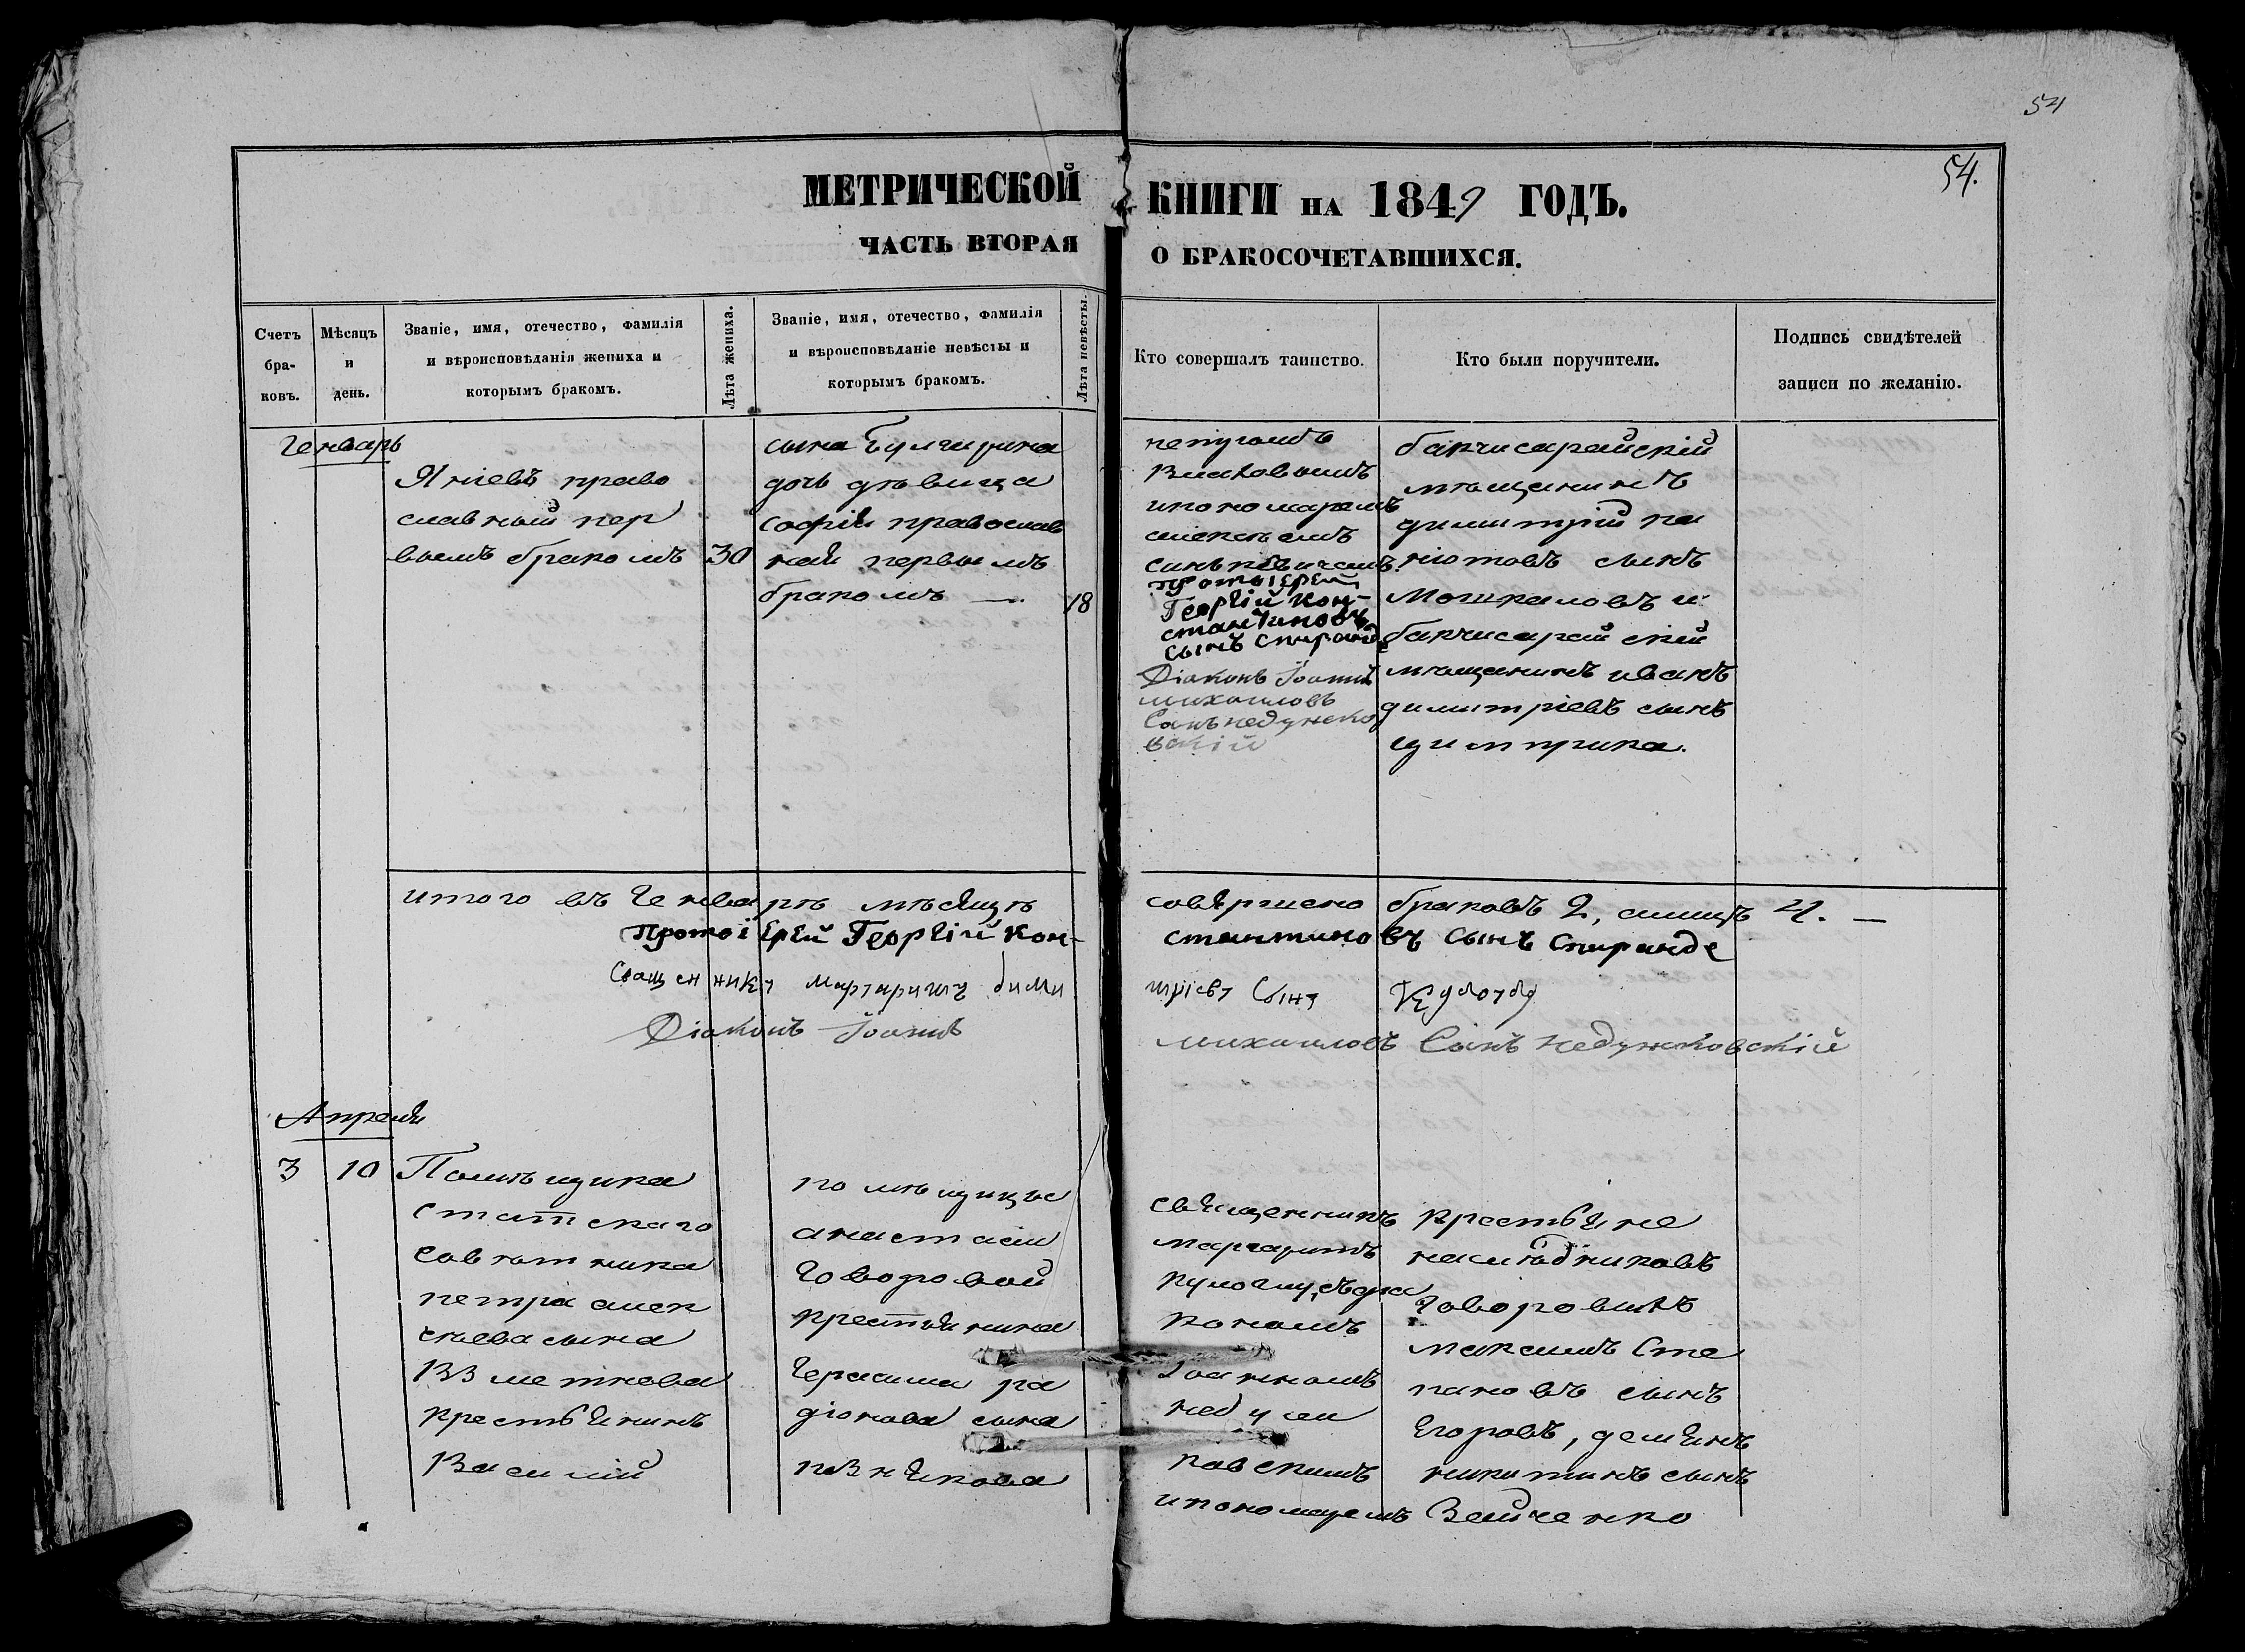 54
54.
МЕТРИЧЕСКОЙ КНИГИ НА 1849 ГОДЪ.
ЧАСТЬ ВТОРАЯ О БРАКОСОЧЕТАВШИХСЯ.
Счетъ
бра-
ковъ.
Мѣсяцъ
и
день.
Званіе, имя, отечество, фамилія
и вѣроисповѣданія жениха и
которымъ бракомъ.
Лѣта жениха.
Званіе, имя, отечество, фамилія
и вѣроисповѣданіе невѣсты и
которымъ бракомъ.
Лѣта невѣсты.
Кто совершалъ таинство.
Кто были поручители.
Подпись свидѣтелей
записи по желанію.
Генварь
Яніевъ право
славный пер
вымъ бракомъ
30
сына
дочь дѣвица
софія православ
ная первымъ
бракомъ —
18
ипономаремъ
алексѣемъ
протоіерей
Георгій Кон-
стантиновъ
сынъ Спиранде
Діаконъ Іоаннъ
михаиловъ
Сынъ недужко
вскій
бакчисарайскій
мѣщанинъ
димитрій па
ніотовъ сынъ
Мошкаловъ и
бакчисарайскій
мѣщанинъ иванъ
димитріевъ сынъ
итого въ Генварѣ мѣсяцѣ совершено браковъ 2, 4. —
Протоіерей Георгій Кон- стантиновъ сынъ Спиранде
Священникъ маргаритъ дими тріевъ Сынъ
Діаконъ Іоаннъ михаиловъ Сынъ недужковскій
Апреля
3
10
Помѣщика
статскаго
совѣтника
петра алек
сѣева сына
крестьянинъ
Василій
помѣщицы
анастасіи
Говоровой
крестьянина
Герасима ра
діонова сына
священникъ
маргаритъ
кономъ
Іоанномъ
недуж
ковскимъ
ипономаремъ
крестьяне
наслѣдниковъ
Говоровыхъ
максимъ Сте
пановъ сынъ
Егоровъ, демянъ
никитинъ сынъ